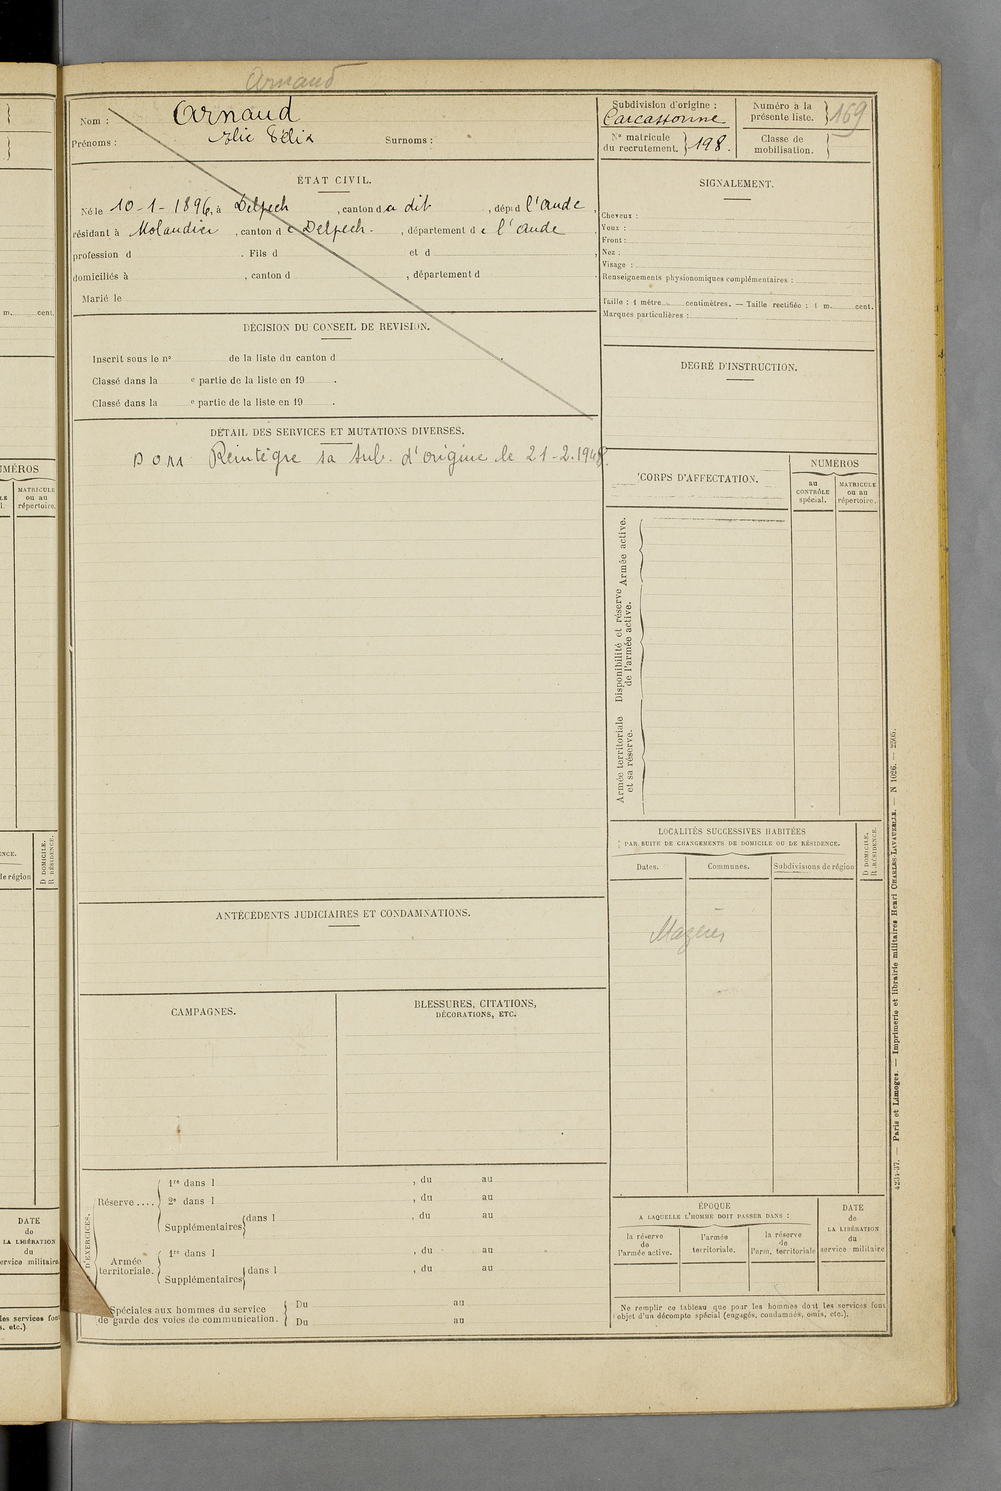 Arnaud
Nom : Arnaud
Prénoms : Elie Félix Surnoms :
Subdivision d'origine :
Carcassonne
N° matricule
du recrutement. 198.
Numéro à la
présente liste. 169
Classe de
mobilisation.
ÉTAT CIVIL.
Né le 10-1-1896, à Delpech, canton d u dit, dépt d l'Aude,
résidant à Molandier, canton d e Delpech., département d e l'Aude
profession d . Fils d et d ,
domiciliés à , canton d , département d .
Marié le
SIGNALEMENT.
Cheveux :
Yeux :
Front :
Nez :
Visage :
Renseignements physionomiques complémentaires :
Taille : 1 mètre centimètres. — Taille rectifiée : 1 m. cent.
Marques particulières :
DÉCISION DU CONSEIL DE REVISION.
Inscrit sous le n° de la liste du canton d .
Classé dans la e partie de la liste en 19 .
Classé dans la e partie de la liste en 19 .
DEGRÉ D'INSTRUCTION.
DÉTAIL DES SERVICES ET MUTATIONS DIVERSES.
Réintègre sa sub. d'origine le 21-2.1948.
CORPS D'AFFECTATION.
NUMÉROS
au
CONTRÔLE
spécial.
MATRICULE
ou au
répertoire.
Armée active.
Disponibilité et réserve
de l'armée active.
Armée territoriale
et sa réserve.
LOCALITÉS SUCCESSIVES HABITÉES
PAR SUITE DE CHANGEMENTS DE DOMICILE OU DE RÉSIDENCE.
D DOMICILE.
R RÉSIDENCE.
Dates. Communes. Subdivisions de région
Mazères
ANTÉCÉDENTS JUDICIAIRES ET CONDAMNATIONS.
CAMPAGNES.
BLESSURES, CITATIONS,
DÉCORATIONS, ETC.
D'EXERCICES.
Réserve ....
1re dans l , du au
2e dans l , du au
Supplémentaires dans l , du au
Armée
territoriale.
1re dans l , du au
Supplémentaires dans l , du au
Spéciales aux hommes du service
de garde des voies de communication.
Du au
Du au
ÉPOQUE
A LAQUELLE L'HOMME DOIT PASSER DANS :
la réserve
de
l'armée active.
l'armée
territoriale.
la réserve
de
l'arm. territoriale
DATE
de
LA LIBÉRATION
du
service militaire
Ne remplir ce tableau que pour les hommes dont les services font
l'objet d'un décompte spécial (engagés, condamnés, omis, etc.).
4234-37. — Paris et Limoges. — Imprimerie et librairie militaires Henri CHARLES-LAVAUZELLE. — N 1026.
m. cent.
NUMÉROS
MATRICULE
ou au
répertoire.
D DOMICILE.
R RÉSIDENCE.
de région
DATE
de
LA LIBÉRATION
du
service militaire
les services font